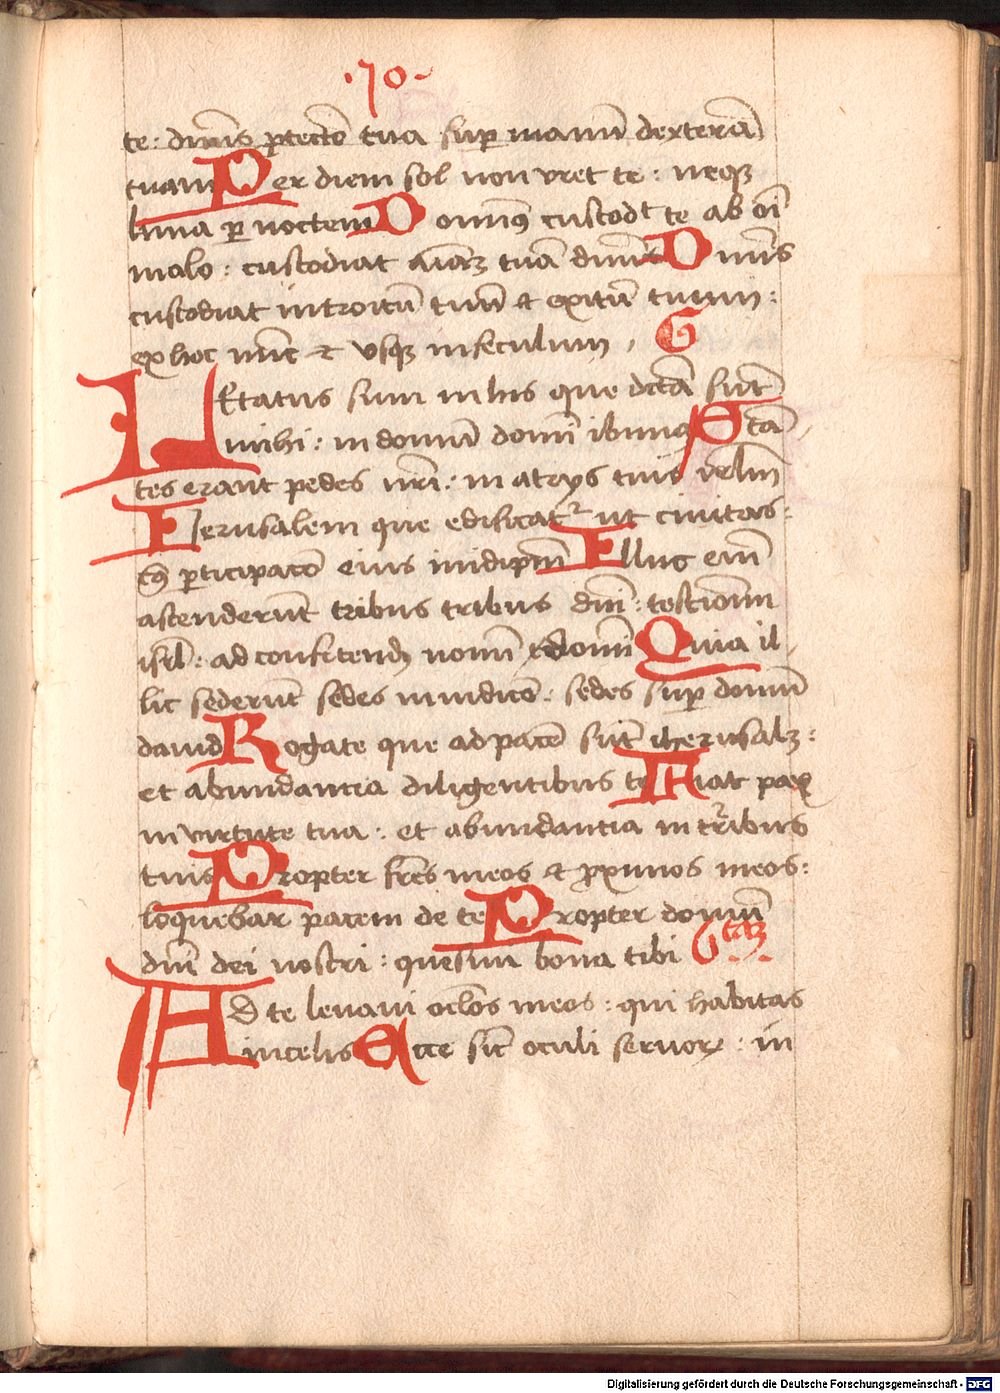 ·70·
te: dm̄s ꝓtectō tua suꝑ manū dexterā
tuam Per diem sol non vret te: neqꝫ
luna ꝑ noctem Domin9 custodt te ab oī
malo: custodiat aīaꝫ tuā dm̄s Dm̄s
custodiat introitū tuū et exitū tuum:
ex hoc nūc et vsqꝫ in seculum, G
LEtatus sum in his que dictā sūt
mihi: in domū domī ibimus Stā
tes erant pedes nrī: in atrys tuis irlm̄
Ierusalem que edificatᷣ ut ciuitas:
cu9 ꝑticipacō eius in idipm̄ Illuc eīm
ascenderūt tribus tribus dnī: testimoniū
isrl: ad confitendū nomī domī Quia il
lic sederūt sedes in iudicō: sedes suꝑ domū
dauid Rogate que ad pacē sūt iherusalꝫ:
et abundantia diligentibus te Fiat pax
in virtute tua: et abundantia in turribus
tuis Propter frēs meos et ꝓximos meos:
loquebar pacem de te Propter domū
dnī dei nostri: quesiui bona tibi Gtaꝫ
AD te leuaui oclōs meos: qui habitas
in celis Ecce sīc oculi seruorꝫ: in
Digitalisierung gefördert durch die Deutsche Forschungsgemeinschaft - DFG